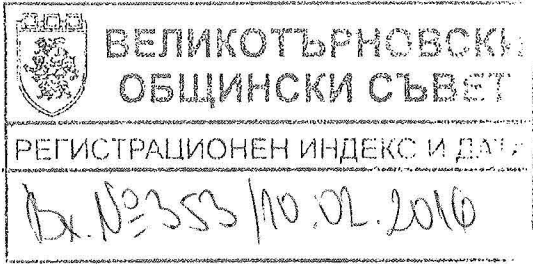 ВЕЛИКОТЪРНОВСКИ
ОБЩИНСКИ СЪВЕТ
РЕГИСТРАЦИОНЕН ИНДЕКС И ДАТА
Вх. № 353 /10.02.2016